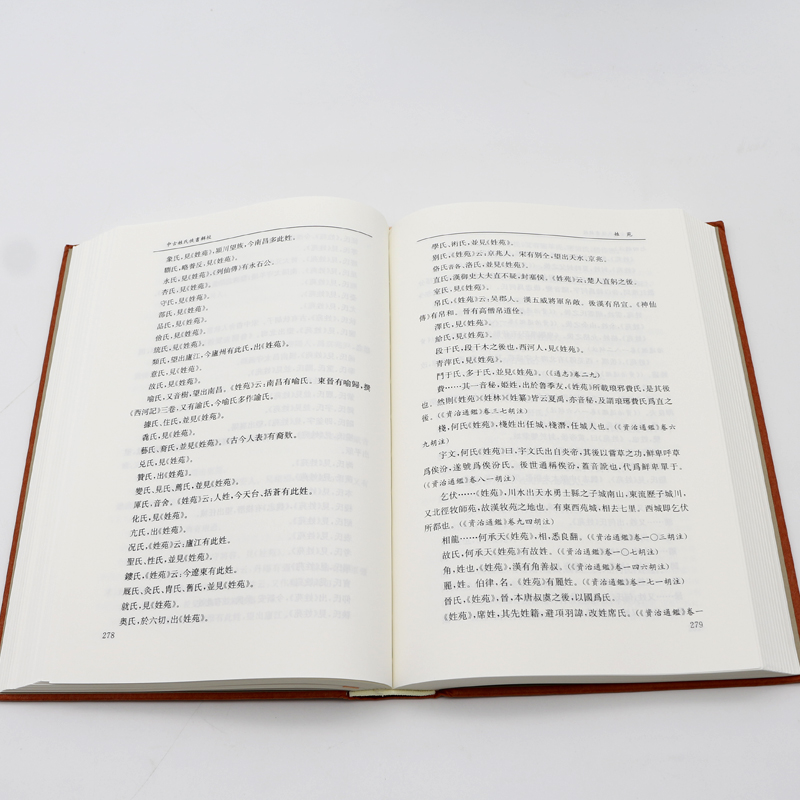 中古姓氏佚書輯校
象氏,見《姓苑》,潁川望族,今南昌多此姓。
永氏,見《姓苑》。《列仙傳》有永石公。
杏氏,見《姓苑》。
守氏,見《姓苑》。
部氏,見《姓苑》。
品氏,見《姓苑》。
儉氏,見《姓苑》。
統氏,見《姓苑》。
類氏,望出廬江,今廬州有此氏,出《姓苑》。
意氏,見《姓苑》。
故氏,見《姓苑》。
喻氏,又音樹,望出南昌。《姓苑》云:南昌有喻氏。東晉有喻歸,撰
《西河記》三卷,又有諭氏,今喻氏多作諭氏。
據氏、住氏,並見《姓苑》。
毳氏,見《姓苑》。
藝氏、裔氏,並見《姓苑》。《古今人表》有裔欵。
兌氏,見《姓苑》。
贊氏,出《姓苑》。
變氏、見氏、薦氏,並見《姓苑》。
厙氏,音舍。《姓苑》云:人姓,今天台、括蒼有此姓。
化氏,見《姓苑》。
亢氏,出《姓苑》。
况氏,《姓苑》云:廬江有此姓。
聖氏、性氏,並見《姓苑》。
鏤氏,《姓苑》云:今遼東有此姓。
厩氏、灸氏、胄氏、舊氏,並見《姓苑》。
就氏,見《姓苑》。
奥氏,於六切,出《姓苑》。
278
姓苑
學氏、術氏,並見《姓苑》。
別氏,《姓苑》云:京兆人。宋有別全,望出天水、京兆。
恪氏音各、洛氏,並見《姓苑》。
直氏,漢御史大夫直不疑,封塞侯。《姓苑》云:楚人直躬之後。
室氏,見《姓苑》。
帛氏,《姓苑》云:吴郡人。漢五威將軍帛敞。後漢有帛宣。《神仙
傳》有帛和。晉有高僧帛道佺。
澤氏,見《姓苑》。
給氏,見《姓苑》。
段干氏,段干木之後也,西河人,見《姓苑》。
青萍氏,見《姓苑》。
鬥于氏、多于氏,並見《姓苑》。(《通志》卷二九)
費……其一音祕,姬姓,出於魯季友,《姓苑》所載琅邪費氏,是其後
也。然則《姓苑》《姓林》《姓纂》皆云夏禹,亦音祕,及謂琅琊費氏爲直之
後。(《資治通鑑》卷三七胡注)
棧,何氏《姓苑》,棧姓出任城,棧潛,任城人也。(《資治通鑑》卷六
九胡注)
宇文,何氏《姓苑》曰,宇文氏出自炎帝,其後以嘗草之功,鮮卑呼草
爲俟汾,遂號爲俟汾氏。後世通稱俟汾,蓋音訛也,代爲鮮卑單于。
(《資治通鑑》卷八一胡注)
乞伏……《姓苑》,川水出天水勇士縣之子城南山,東流歷子城川,
又北徑牧師苑,故漢牧苑之地也。有東西苑城,相去七里。西城即乞伏
所都也。(《資治通鑑》卷九四胡注)
相龍……何承天《姓苑》,相,悉良翻。(《資治通鑑》卷一〇三胡注)
故氏,何承天《姓苑》有故姓。(《資治通鑑》卷一〇七胡注)
角,姓也,《姓苑》,漢有角善叔。(《資治通鑑》卷一四六胡注)
麗,姓。伯律,名。《姓苑》有麗姓。(《資治通鑑》卷一七一胡注)
晉氏,《姓苑》,晉,本唐叔虞之後,以國爲氏。
《姓苑》,席姓,其先姓籍,避項羽諱,改姓席氏。(《資治通鑑》卷一
279